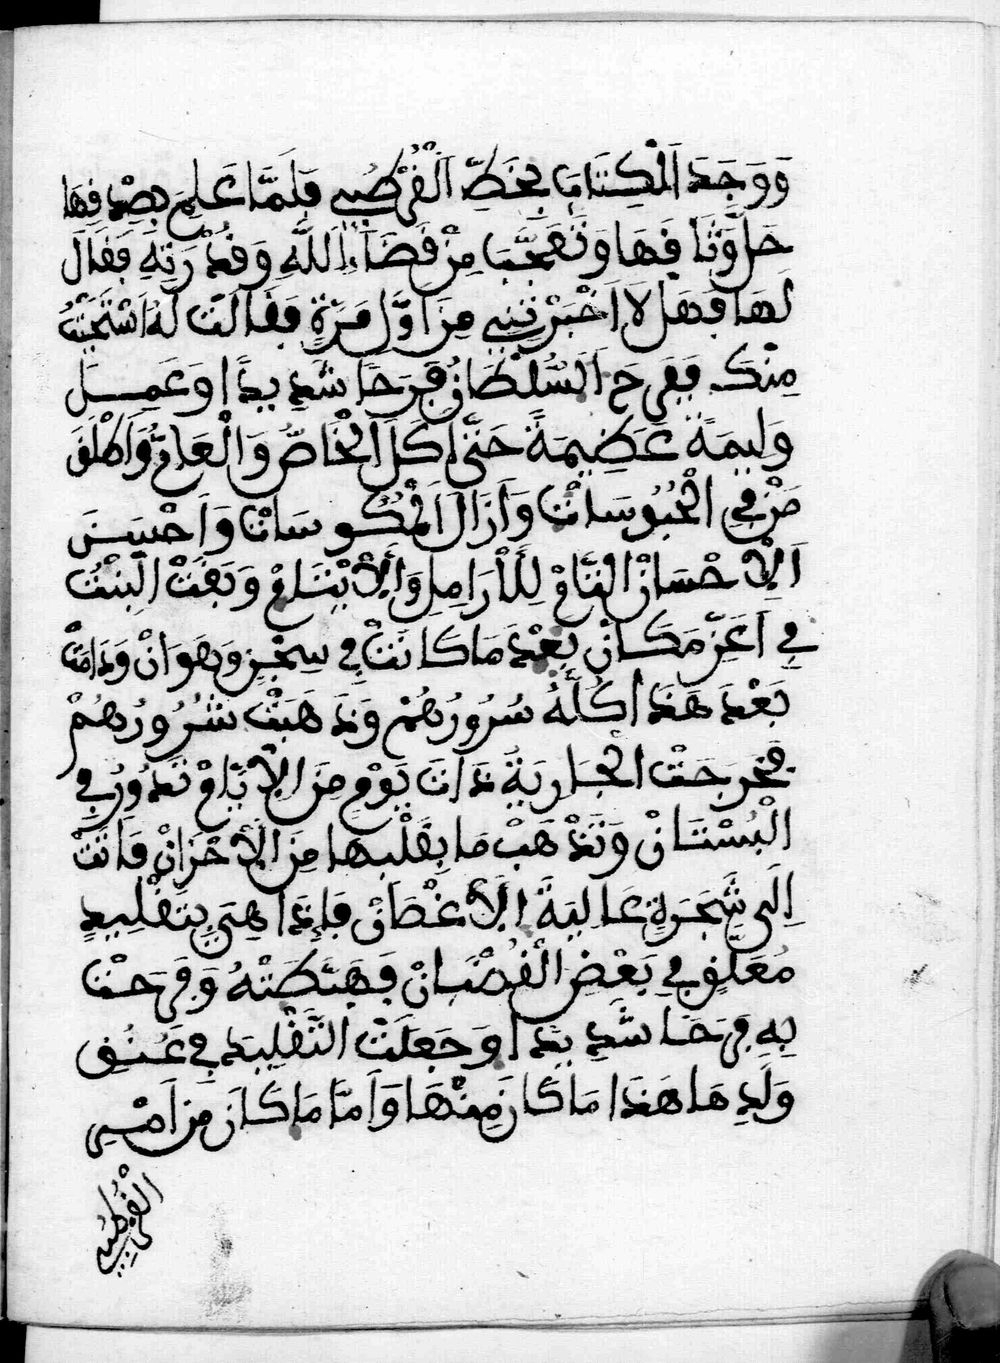 وَوَجَدَ الْكِتَابَ بِخَطِّ الْقُرْطُبِي فَلَمَّا عَلِمَ بِصِدْقِهَا
خَلَّ وَثَاقَهَا وَتَعَجَّبَ مِنْ قَضَاءِ اللَّهِ وَقُدْرَتِهِ فَقَالَ
لَهَا فَهَلَّا اَخْبَرْتَنِي مِنَ اوَّلِ مَرَّةٍ فَقَالَتْ لَهُ اسْتَحَيْتُ
مِنْكَ فَفَرِحَ السُّلْطَانُ فَرَحًا شَدِيدًا وَعَمِلَ
وَلِيمَةً عَظِيمَةً حَتَّى اَكَلَ الْخَاصُّ وَالْعَامُّ وَاَطْلَقَ
مَنْ فِي الْحُبُوسَاتْ وَاَزَالَ الْمُكُوسَاتْ وَاَحْسَنَ
اَلْاِحْسَانْ التَّامْ لِلْأَرَامِلِ وَالْأَيْتَامْ وَبَقَتْ الْبِنْتُ
فِي اَعَزِّ مَكَانْ بَعْدَ مَا كَانَتْ فِي سِجْنٍ وَهَوَانْ وَدَامَتْ
بَعْدَ هَذَا كُلِّهِ سُرُورُهُمْ وَذَهَبَتْ شُرُورُهُمْ
فَخَرَجَتْ الْجَارِيَةُ ذَاتَ يَوْمٍ مِنَ الْأَيَّامْ تَدُورُ فِي
الْبُسْتَانْ وَتَذْهَبْ مَا بِقَلْبِهَا مِنَ الْأَحْزَانْ فَاَتَتْ
اِلَى شَجَرَةٍ عَالِيَةَ الْأَغْصَانْ فَإِذَا هِيَ بِتَقْلِيدٍ
مُعَلَّقٍ فِي بَعْضِ الْقُضْبَانْ فَهَبَطَتْهُ وَفَرِحَتْ
بِهِ فَرَحًا شَدِيدًا وَجَعَلَتْ التَّقْلِيدَ فِي عُنُقِ
وَلَدِهَا هَذَا مَا كَانَ مِنْهَا وَاَمَّا مَا كَانَ مِنَ اَمْرِ
الْقُرْطُبِي